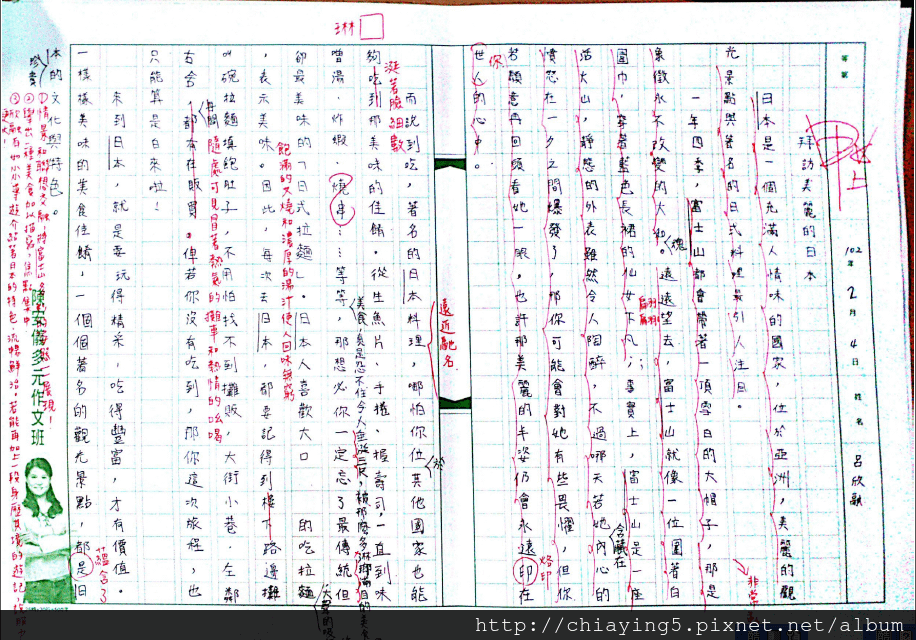 年級
102年2月4日
姓名
呂欣融
上
拜訪美麗的日本
日本是一個充滿人情味的國家，位於亞洲，美麗的觀
光景點與著名的日式料理最引人注目。
一年四季，富士山都會帶著一頂雪白的大帽子，那是
象徵永不改變的大 遠遠望去，富士山就像一位圍著白
圍巾，穿著藍色長裙的仙女下凡；事實上，富士山是一座
活火山，靜態的外表雖然令人陶醉，不過哪天若她內心的
憤怒在一夕之間爆發了，那你可能會對她有些畏懼，但你
若願意再回頭看她一眼，也許那美麗的丰姿仍會永遠印在
你
世人的心中。
非常
魂
翩翩
含藏在
烙印
琳
而說到吃，著名的日本料理，哪怕你位其他國家也能
夠吃到那美味的佳餚。從生魚片、手捲、握壽司，一直到味
噌湯、炸蝦、燒串……等等，那想必你一定忘了最傳統，但
卻最美味的「日式拉麵」。日本人喜歡大口 的吃拉麵
，表示美味。因此，每次去日本，都要記得到樓下路邊攤
叫碗拉麵填飽肚子，不用怕找不到攤販，大街小巷、左鄰
右舍 都有在販買。倘若你沒有吃到，那你這次旅程，也
只能算是白來啦！
來到日本，就是要玩得精采，吃得豐富，才有價值。
一樣樣美味的美食佳餚，一個個著名的觀光景點，都是日
本的文化與特色。
遠近馳名
於
涎著臉細數
飽滿的叉燒和濃厚的湯汁使人回味無窮
隨處可見冒著熱氣的攤車和熱情的吆喝
蘊含了
陳安儀多元作文班
http://chiaying5.pixnet.net/album